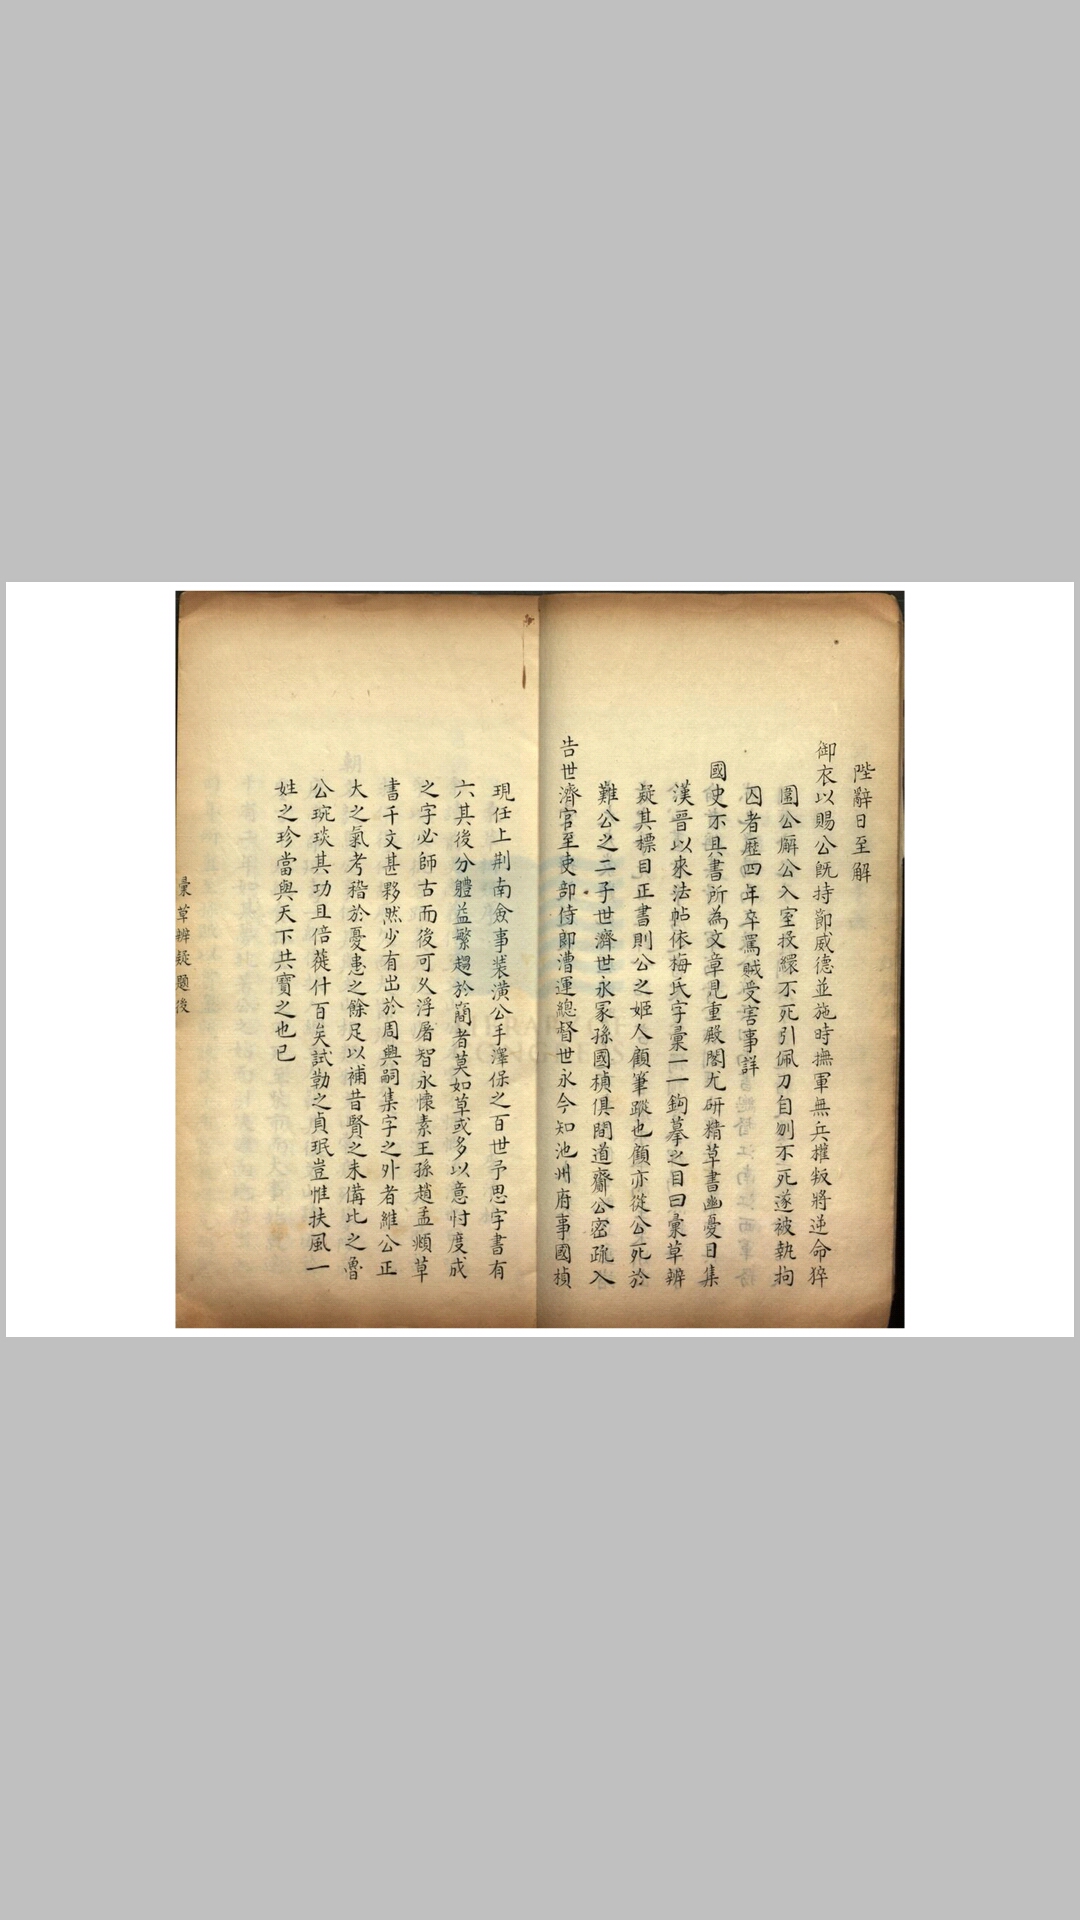 陛辭日至解
御衣以賜公既持節威德並施時撫軍無兵摧叛將逆命猝
圍公廨公入室投繯不死引佩刀自刎不死遂被執拘
囚者歷四年卒罵賊受害事詳
國史不具書所為文章見重殿閣尤研精草書幽憂日集
漢晉以來法帖依梅氏字彙一一鉤摹之目曰彙草辨
疑其標目正書則公之姬人顧筆蹤也顧亦從公死於
難公之三子世濟世永冢孫國楨俱間道齎公密疏入
告世濟官至吏部侍郎漕運總督世永今知池州府事國楨
現任上荆南僉事裝潢公手澤保之百世予思字書有
六其後分體益繁趨於簡者莫如草或多以意忖度成
之字必師古而後可久浮屠智永懷素王孫趙孟頫草
書千文甚夥然少有出於周興嗣集字之外者維公正
大之氣考稽於憂患之餘足以補昔賢之未備比之魯
公琬琰其功且倍蓰什百矣試勒之貞珉豈惟扶風一
姓之珍當與天下共寶之也已
彙草辨疑題後